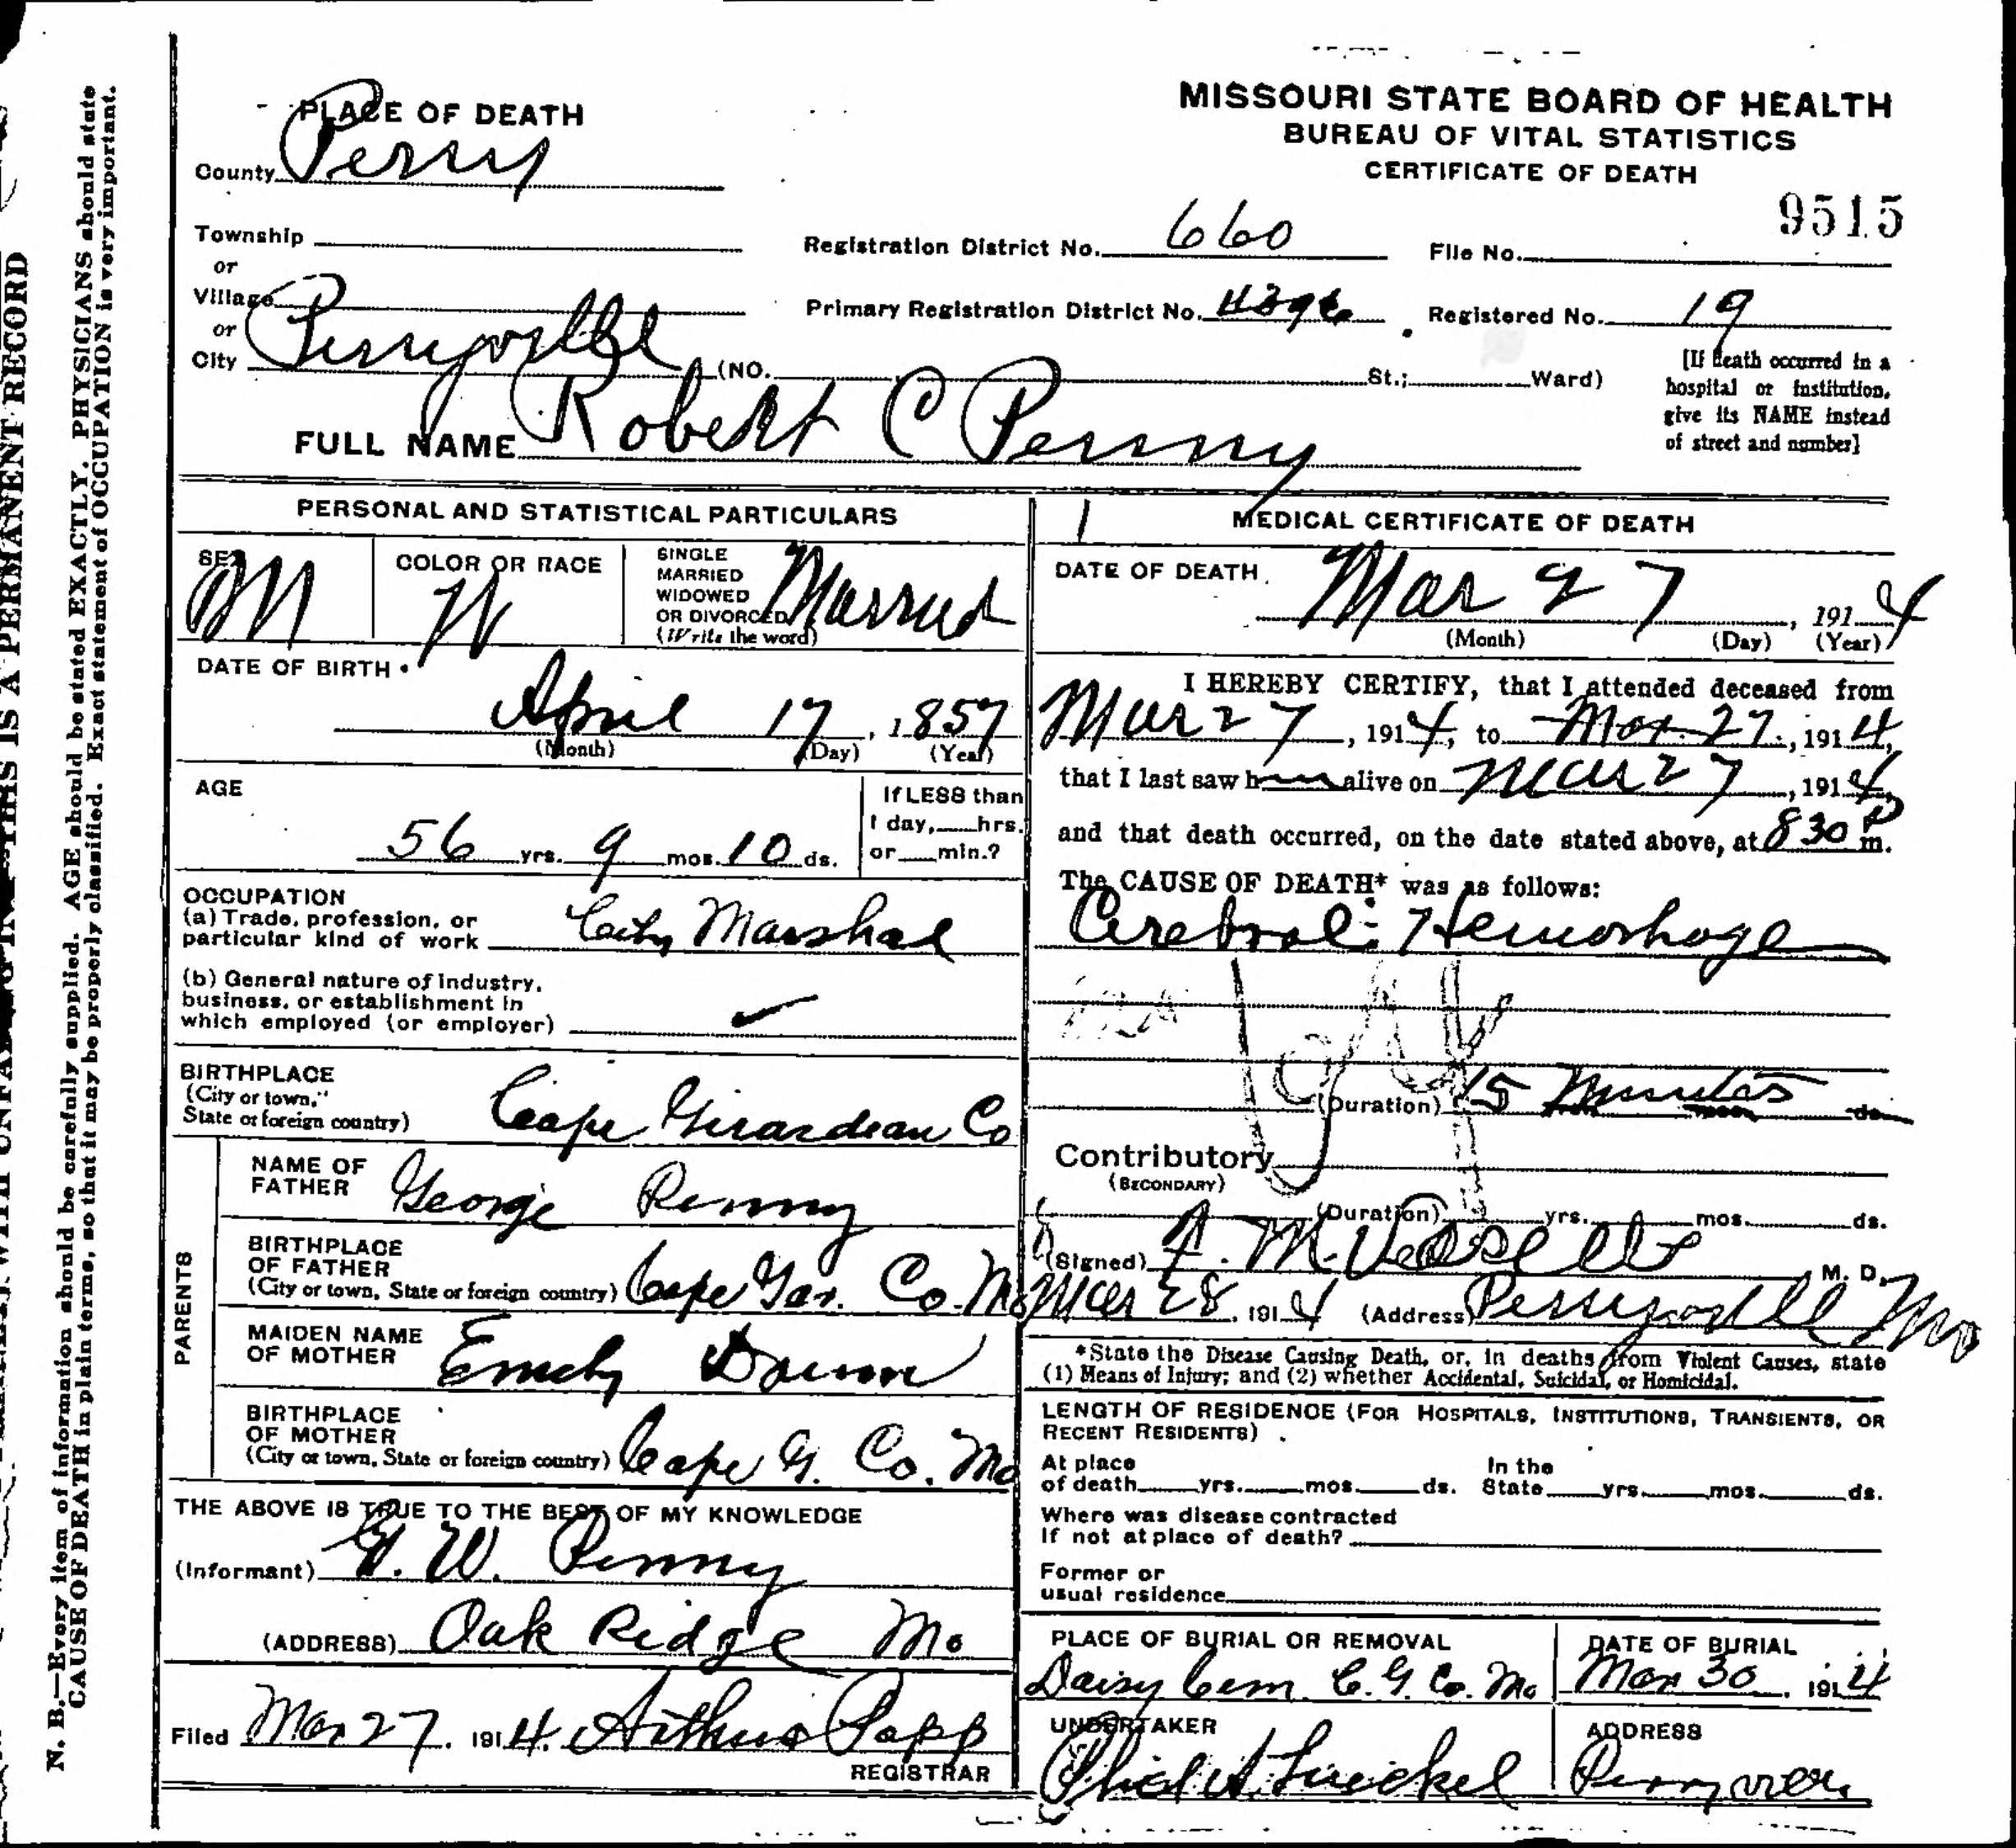 MISSOURI STATE BOARD OF HEALTH
BUREAU OF VITAL STATISTICS
CERTIFICATE OF DEATH
PLACE OF DEATH
County Perry
Township
or
Village
or
City Perryville (NO. St.; Ward)
Registration District No. 660
File No. 9515
Primary Registration District No.
Registered No. 19
[If death occurred in a
hospital or institution,
give its NAME instead
of street and number]
FULL NAME Robert C Penny
PERSONAL AND STATISTICAL PARTICULARS
SEX M
COLOR OR RACE W
SINGLE
MARRIED
WIDOWED
OR DIVORCED
(Write the word) Married
DATE OF BIRTH
April 17, 1857
(Month) (Day) (Year)
AGE
56 yrs. 9 mos. 10 ds.
If LESS than
1 day, hrs.
or min.?
OCCUPATION
(a) Trade, profession, or
particular kind of work City Marshal
(b) General nature of industry,
business, or establishment in
which employed (or employer) ✓
BIRTHPLACE
(City or town,
State or foreign country) Cape Girardeau Co
PARENTS
NAME OF
FATHER George Penny
BIRTHPLACE
OF FATHER
(City or town, State or foreign country) Cape Gar. Co. Mo
MAIDEN NAME
OF MOTHER Emely
BIRTHPLACE
OF MOTHER
(City or town, State or foreign country) Cape G. Co. Mo
THE ABOVE IS TRUE TO THE BEST OF MY KNOWLEDGE
(Informant) G. W. Penny
(ADDRESS) Oak Ridge Mo
Filed Mar 27, 1914. Arthur Papp
REGISTRAR
MEDICAL CERTIFICATE OF DEATH
DATE OF DEATH
Mar 27, 1914
(Month) (Day) (Year)
I HEREBY CERTIFY, that I attended deceased from
Mar 27, 1914, to Mar. 27, 1914,
that I last saw him alive on Mar 27, 1914,
and that death occurred, on the date stated above, at 830 P m.
The CAUSE OF DEATH* was as follows:
Cerebral Hemorhage
(Duration) 15 Minutes ds
Contributory
(SECONDARY)
(Duration) yrs. mos. ds.
(Signed) M. D.
Mar 28, 1914 (Address) Perryvill Mo
*State the Disease Causing Death, or, in deaths from Violent Causes, state
(1) Means of Injury; and (2) whether Accidental, Suicidal, or Homicidal.
LENGTH OF RESIDENCE (FOR HOSPITALS, INSTITUTIONS, TRANSIENTS, OR
RECENT RESIDENTS)
At place
of death yrs. mos. ds.
In the
State yrs. mos. ds.
Where was disease contracted
If not at place of death?
Former or
usual residence
PLACE OF BURIAL OR REMOVAL
Daisy Cem. C. G. Co. Mo
DATE OF BURIAL
Mar 30, 1914
UNDERTAKER
ADDRESS
N. B.—Every item of information should be carefully supplied. AGE should be stated EXACTLY. PHYSICIANS should state
CAUSE OF DEATH in plain terms, so that it may be properly classified. Exact statement of OCCUPATION is very important.
THIS IS A PERMANENT RECORD